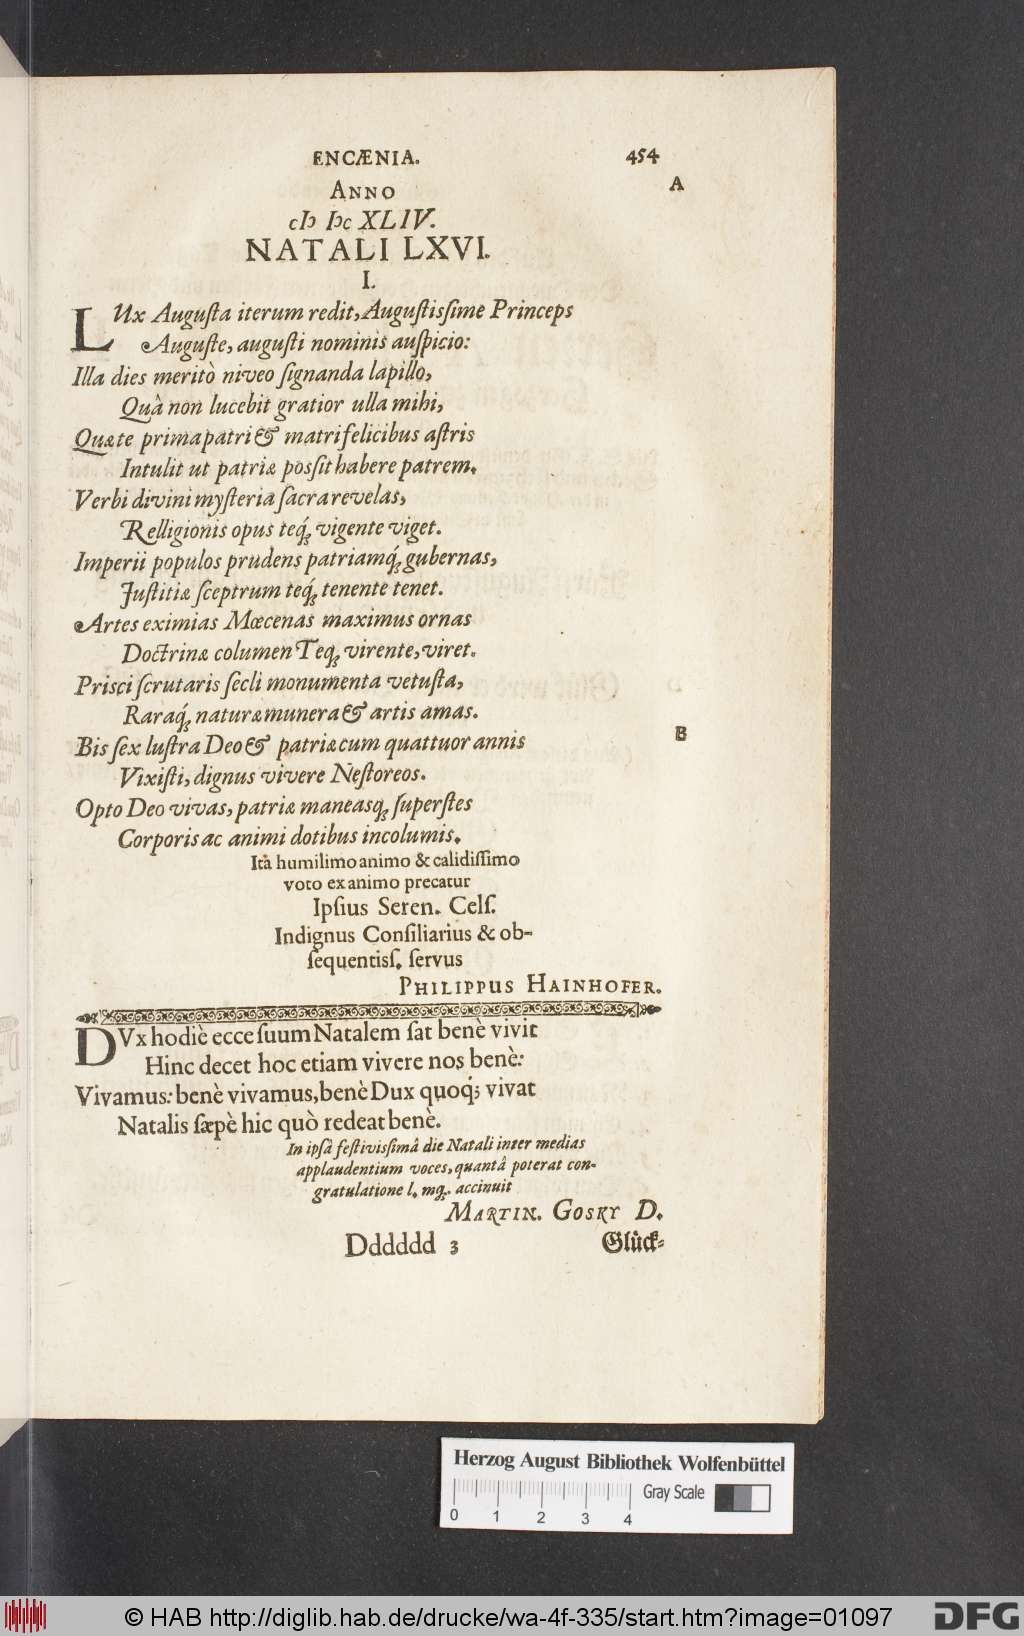 ENCÆNIA. 454
A
ANNO
cIↃ IↃc XLIV.
NATALI LXVI.
I.
LUx Auguſta iterum redit, Auguſtiſſime Princeps
Auguſte, auguſti nominis auſpicio:
Illa dies meritò niveo ſignanda lapillo,
Quâ non lucebit gratior ulla mihi,
Quæ te prima patri & matri felicibus aſtris
Intulit ut patriæ poſsit habere patrem.
Verbi divini myſteria ſacra revelas,
Relligionis opus teq́; vigente viget.
Imperii populos prudens patriamq́; gubernas,
Juſtitiæ ſceptrum teq́; tenente tenet.
Artes eximias Mœcenas maximus ornas
Doctrinæ columen Teq; virente, viret.
Priſci ſcrutaris ſecli monumenta vetuſta,
Raraq́; naturæ munera & artis amas.
Bis ſex luſtra Deo & patriæ cum quattuor annis B
Vixiſti, dignus vivere Neſtoreos.
Opto Deo vivas, patriæ maneasq; ſuperſtes
Corporis ac animi dotibus incolumis.
Ità humilimo animo & calidiſſimo
voto ex animo precatur
Ipſius Seren. Celſ.
Indignus Conſiliarius & ob-
ſequentiſſ. ſervus
PHILIPPUS HAINHOFER.
DVx hodiè ecce ſuum Natalem ſat benè vivit
Hinc decet hoc etiam vivere nos benè:
Vivamus: benè vivamus, benè Dux quoq́; vivat
Natalis ſæpè hic quò redeat benè.
In ipſâ feſtiviſsimâ die Natali inter medias
applaudentium voces, quantâ poterat con-
gratulatione l. mq;. accinuit
MARTIN. GOSKY D.
Dddddd 3 Glück-
Herzog August Bibliothek Wolfenbüttel
Gray Scale
0 1 2 3 4
© HAB http://diglib.hab.de/drucke/wa-4f-335/start.htm?image=01097 DFG